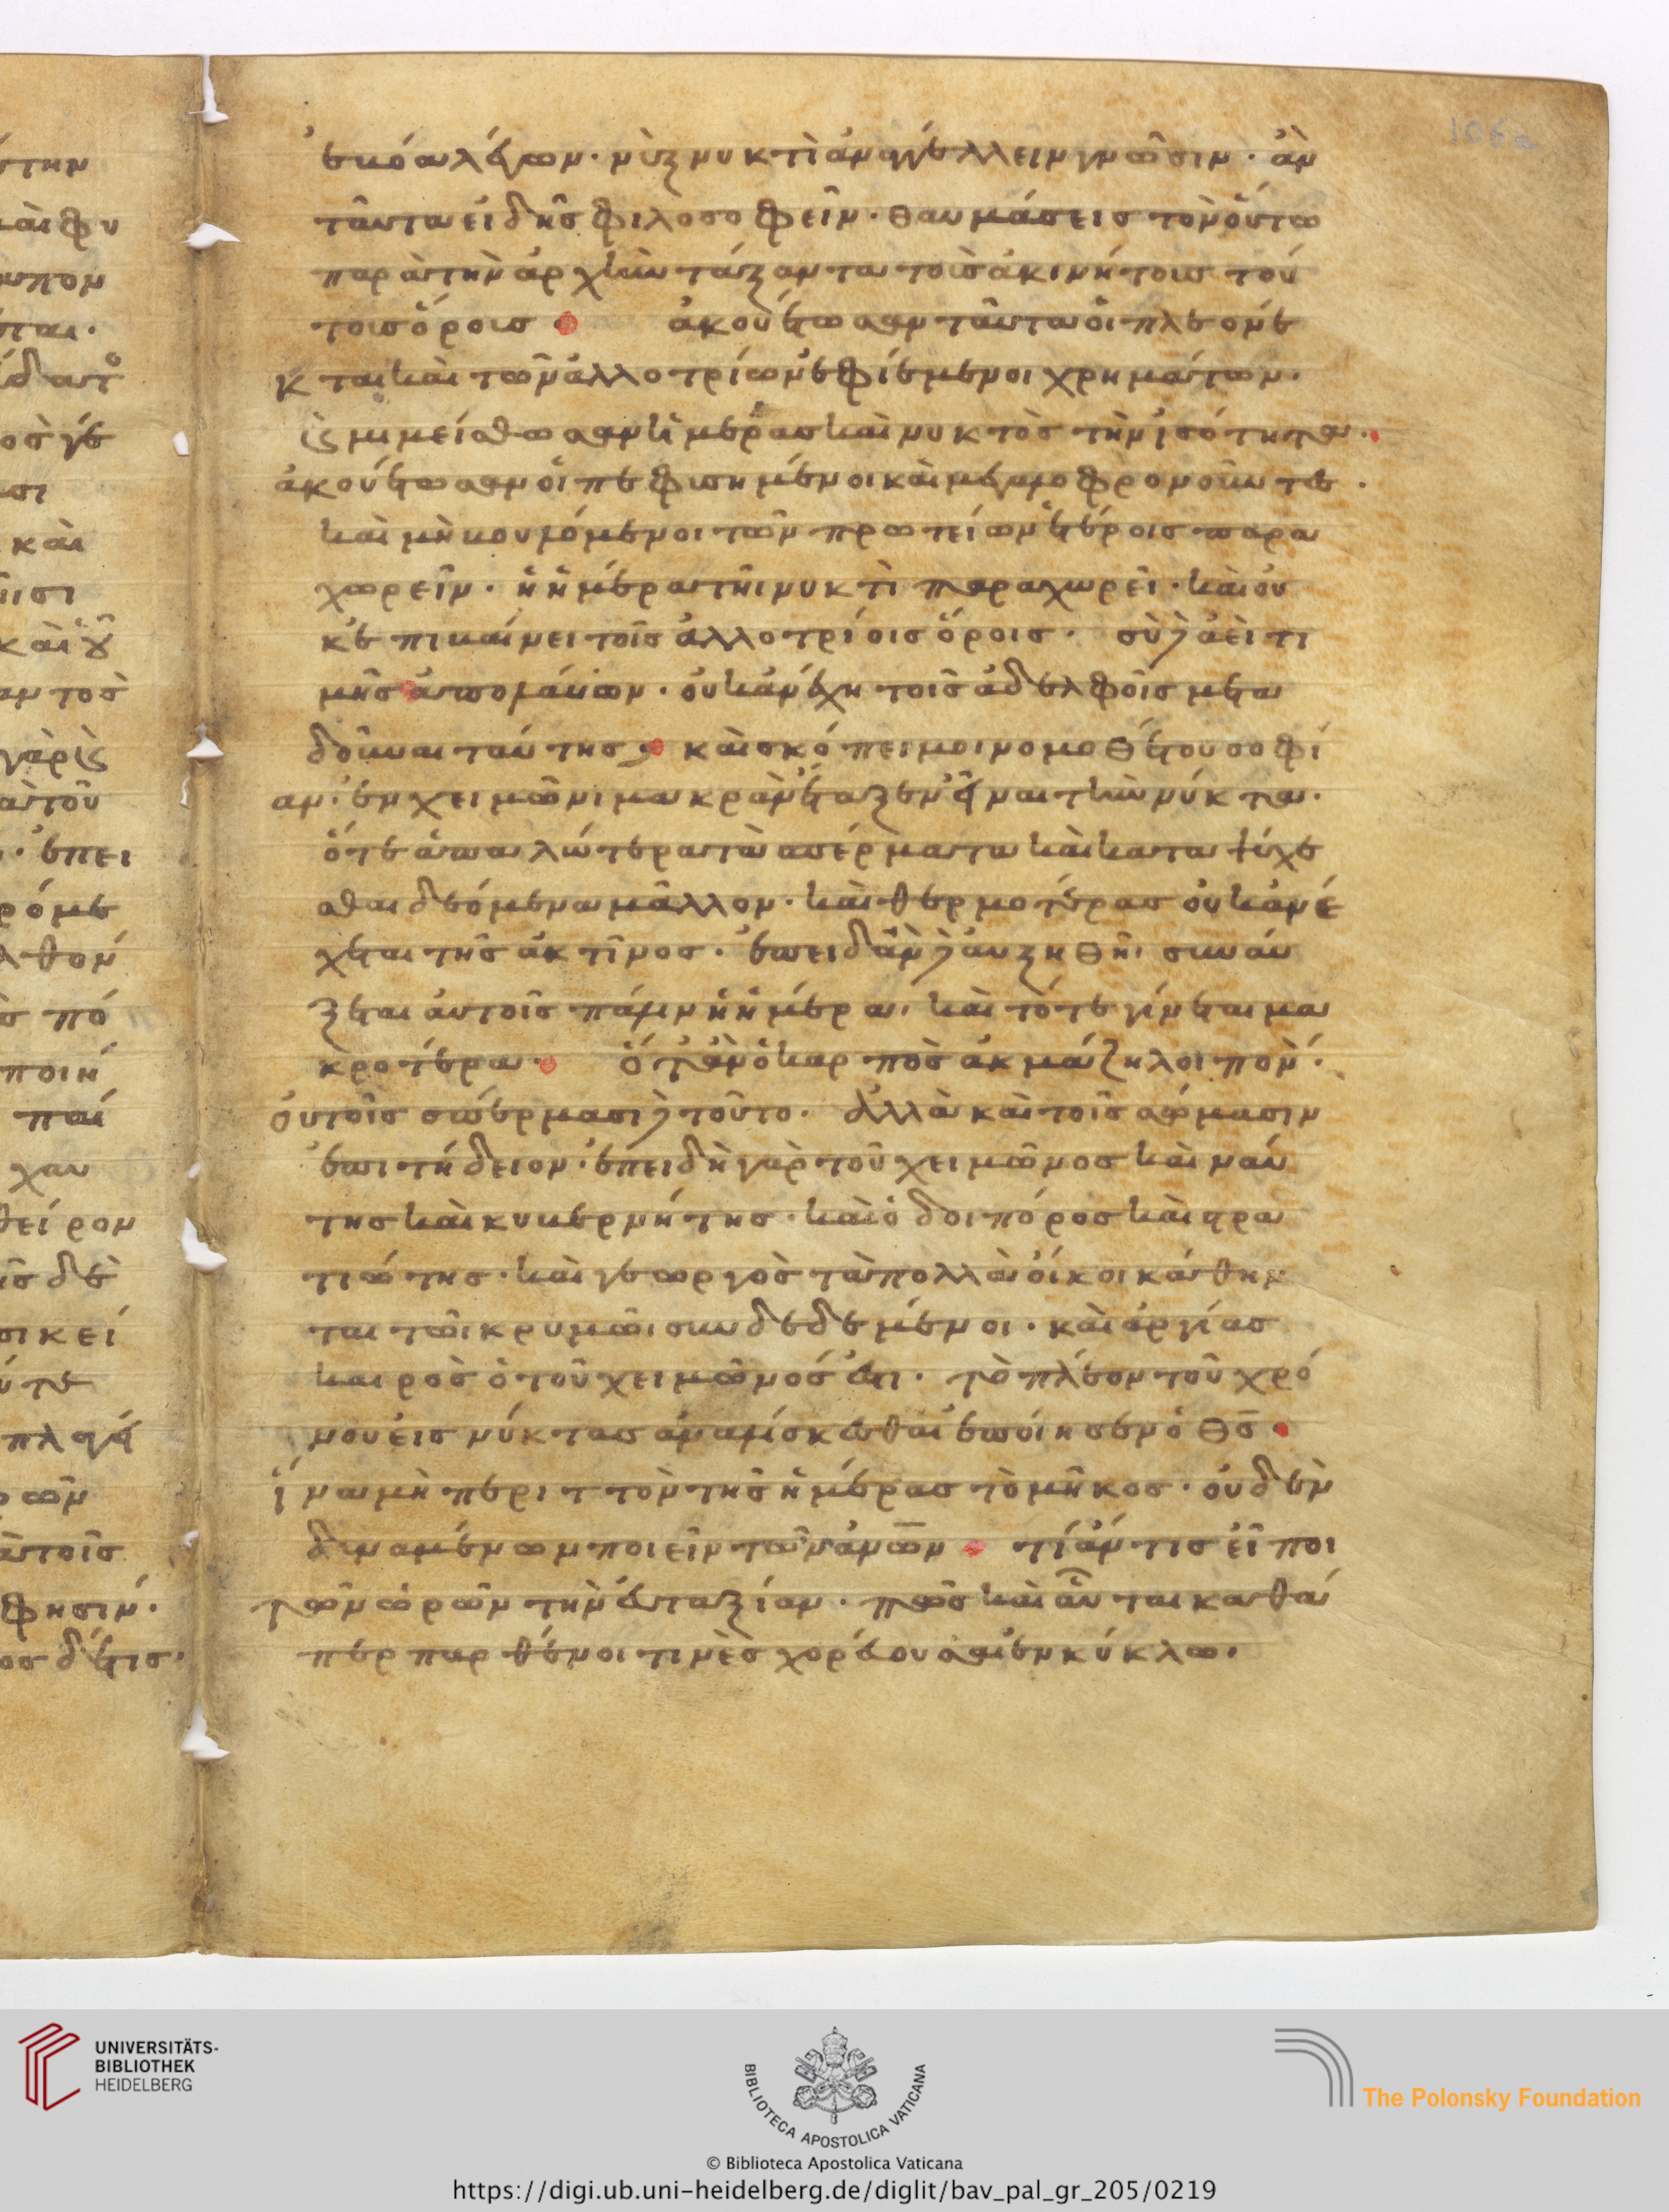 στην
καὶ φυ
πον
σται·
ὸς γὲ
σι
καὶ
ῆισι
καὶ οὐ
αντος
γὰρ καὶ
αὐτοῦ
· ἐπει
ρόμε
λθον
ς πό
ποιή
παί
χαυ
θείρον
ῖς δὲ
σικεί
πληγὴ
ρων
αὐτοῖς
φησίν·
ος δέτις·
ἐβόα λέγων· νὺξ νυκτὶ ἀναγγέλλειν γνῶσιν· ἀν
ταῦτα εἰδῆς φιλοσοφεῖν· θαυμάσεις τὸν οὕτω
παρὰ τὴν ἀρχὴν τάξαντα τοῖς ἀκινήτοις τού
τοις ὅροις· ἀκουέτωσαν ταῦτα οἱ πλεονέ
κται καὶ τῶν ἀλλοτρίων ἐφιέμενοι χρημάτων·
καὶ μιμείσθωσαν ἡμέρας καὶ νυκτὸς τὴν ἰσότητα·
ἀκουέτωσαν οἱ πεφυσημένοι καὶ μεγαλοφρονοῦντες·
καὶ μὴ βουλόμενοι τῶν πρωτείων ἑτέροις παρα
χωρεῖν· ἡ ἡμέρα τῆι νυκτὶ παραχωρεῖ· καὶ οὐ
κ ἐπιβαίνει τοῖς ἀλλοτρίοις ὅροις· σὺ δὲ ἀεὶ τι
μῆς ἀπολαύων· οὐκ ἀνέχη τοῖς ἀδελφοῖς μετα
δοῦναι ταύτης· καὶ σκόπει μοι νομοθέτου σοφί
αν· ἐν χειμῶνι μακρὰν ἔταξεν εἶναι τὴν νύκτα·
ὅτε ἁπαλώτερα τὰ σπέρματα καὶ κατατύχε
σθαι δεόμενα μᾶλλον· καὶ θερμοτέρας οὐκ ἀνέ
χεται τῆς ἀκτῖνος· ἐπειδὰν δὲ αὐξηθῆ· συναύ
ξεται αὐτοῖς πάλιν ἡ ἡμέρα· καὶ τότε γίνεται μα
κροτέρα· ὅταν ὁ καρπὸς ἀκμάζη λοιπόν·
οὐ τοῖς σπέρμασι δὲ τοῦτο· ἀλλὰ καὶ τοῖς σώμασιν
ἐπιτήδειον· ἐπειδὴ γὰρ τοῦ χειμῶνος καὶ ναύ
της καὶ κυβερνήτης· καὶ ὁδοιπόρος καὶ στρα
τιώτης· καὶ γεωργὸς τὰ πολλὰ οἴκοι κάθην
ται τῶι κρυμῶι συνδεδεμένοι· καὶ ἀργίας
καιρὸς ὁ τοῦ χειμῶνός ἐστι· τὸ πλέον τοῦ χρό
νου εἰς νύκτας ἀναλίσκεσθαι ἐποίησεν ὁ θς·
ἵνα μὴ περιττὸν τῆς ἡμέρας τὸ μῆκος· οὐδὲν
δυναμένων ποιεῖν τῶν ἀνων· τί ἄν τις εἴποι
τῶν ὡρῶν τὴν εὐταξίαν· πῶς καὶ αὗται καθά
περ παρθένοι τινὲς χορεύουσαι ἐν κύκλω·
106a
UNIVERSITÄTS-
BIBLIOTHEK
HEIDELBERG
BIBLIOTECA APOSTOLICA VATICANA
The Polonsky Foundation
© Biblioteca Apostolica Vaticana
https://digi.ub.uni-heidelberg.de/diglit/bav_pal_gr_205/0219